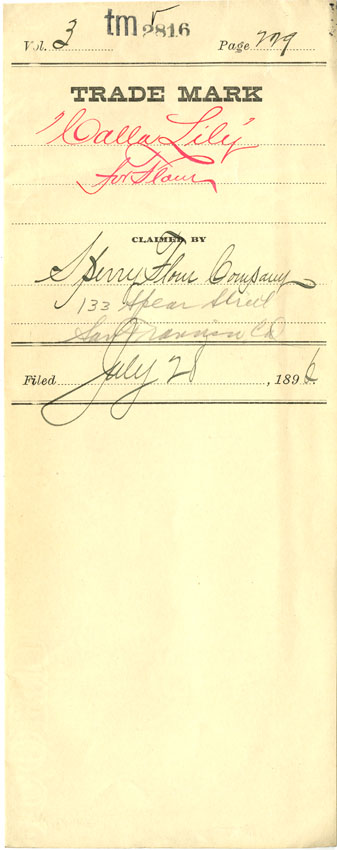 tm 5
2816
Vol. 3 Page 279
TRADE MARK
"Calla Lily"
for Flour
CLAIMED BY
Sperry Flour Company
133 Spear Street
San Francisco Cal
Filed July 28, 1896